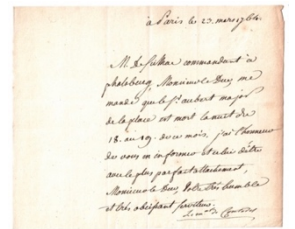 à Paris le 23. mars 1764.
M. de commandant à
phalsbourg, Monsieur le Duc, me
mande que le Sr. aubert major
de la place est mort la nuit du
18. au 19. de ce mois, j'ai l'honneur
de vous en informer et celui d'être
avec le plus parfait attachement,
Monsieur le Duc, votre très humble
et très obeissant serviteur
Le